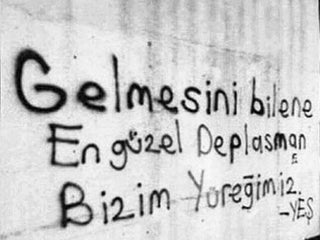 Gelmesini bilene
En güzel Deplasman
Bizim Yüreğimiz.
-YEŞ